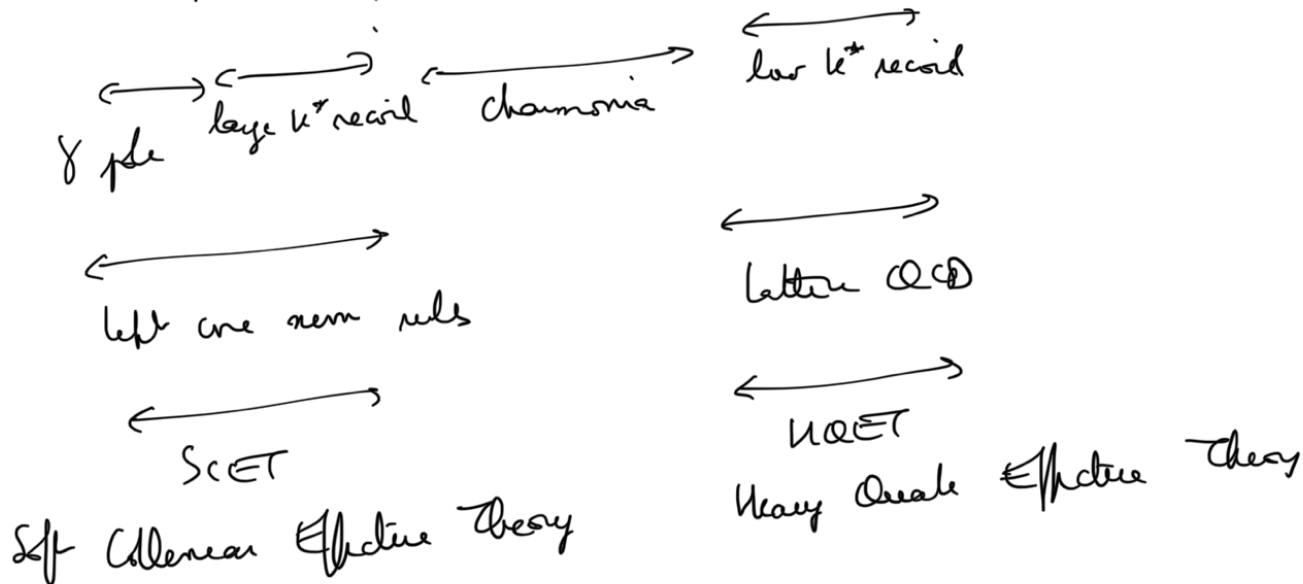 γ pole
large K* recoil
charmonia
low K* recoil
light cone sum rules
Lattice QCD
SCET
Soft Collinear Effective Theory
HQET
Heavy Quark Effective Theory